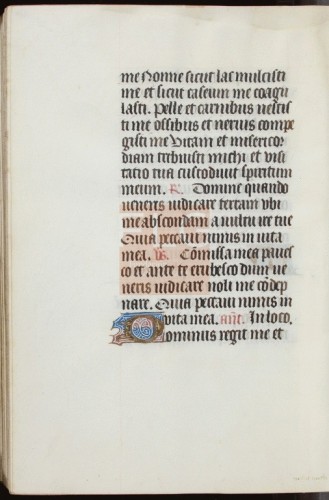 me Nonne sicut lac mulcisti
me et sicut caseum me coagu
lasti. Pelle et carnibus vestis
ti me ossibus et neruis compe
gisti me Vitam et misericor
diam tribuisti michi et visi
tatio tua custodiuit spiritum
meum. R. Domine quando
veneris iudicare terram vbi
me abscondam a vultu ire tue
Quia peccaui nimis in vita
mea. vs. Cōmissa mea paues
co et ante te erubesco dum ve
neris iudicare noli me cōdep
nare. Quia peccaui nimis in
vita mea. ant. In loco.
Dominus regit me et